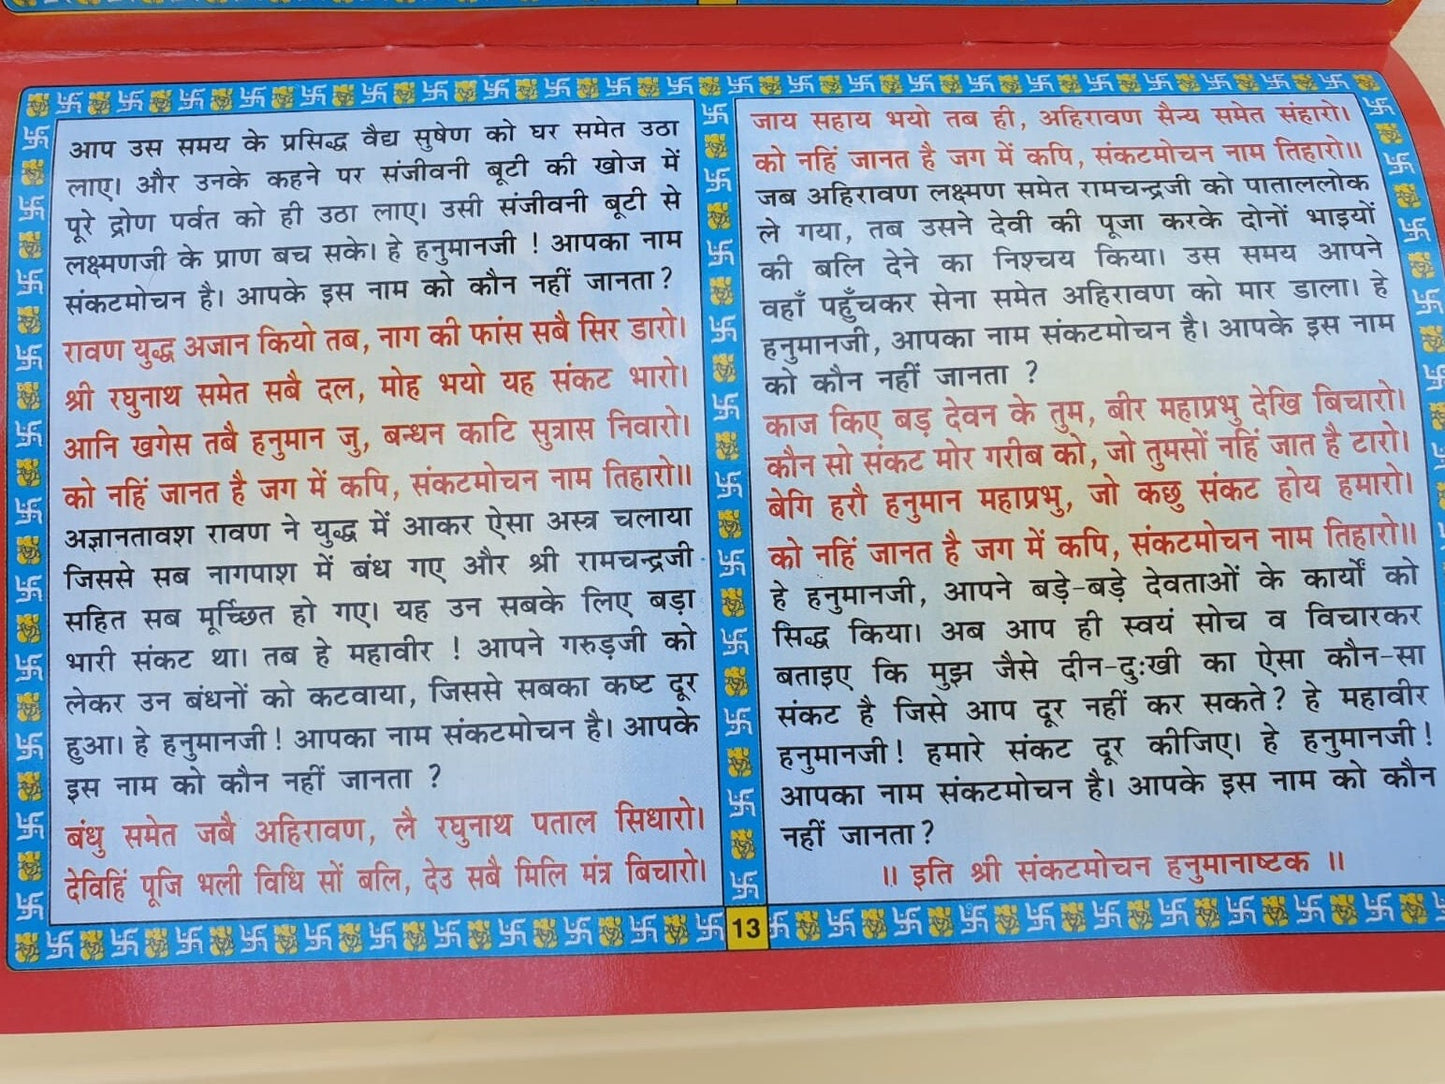 आप उस समय के प्रसिद्ध वैद्य सुषेण को घर समेत उठा
लाए। और उनके कहने पर संजीवनी बूटी की खोज में
पूरे द्रोण पर्वत को ही उठा लाए। उसी संजीवनी बूटी से
लक्ष्मणजी के प्राण बच सके। हे हनुमानजी ! आपका नाम
संकटमोचन है। आपके इस नाम को कौन नहीं जानता ?
रावण युद्ध अजान कियो तब, नाग की फांस सबै सिर डारो।
श्री रघुनाथ समेत सबै दल, मोह भयो यह संकट भारो।
आनि खगेस तबै हनुमान जु, बन्धन काटि सुत्रास निवारो।
को नहिं जानत है जग में कपि, संकटमोचन नाम तिहारो॥
अज्ञानतावश रावण ने युद्ध में आकर ऐसा अस्त्र चलाया
जिससे सब नागपाश में बंध गए और श्री रामचन्द्रजी
सहित सब मूर्च्छित हो गए। यह उन सबके लिए बड़ा
भारी संकट था। तब हे महावीर ! आपने गरुड़जी को
लेकर उन बंधनों को कटवाया, जिससे सबका कष्ट दूर
हुआ। हे हनुमानजी ! आपका नाम संकटमोचन है। आपके
इस नाम को कौन नहीं जानता ?
बंधु समेत जबै अहिरावण, लै रघुनाथ पताल सिधारो।
देविहिं पूजि भली विधि सों बलि, देउ सबै मिलि मंत्र बिचारो।
जाय सहाय भयो तब ही, अहिरावण सैन्य समेत संहारो।
को नहिं जानत है जग में कपि, संकटमोचन नाम तिहारो॥
जब अहिरावण लक्ष्मण समेत रामचन्द्रजी को पाताललोक
ले गया, तब उसने देवी की पूजा करके दोनों भाइयों
की बलि देने का निश्चय किया। उस समय आपने
वहाँ पहुँचकर सेना समेत अहिरावण को मार डाला। हे
हनुमानजी, आपका नाम संकटमोचन है। आपके इस नाम
को कौन नहीं जानता ?
काज किए बड़ देवन के तुम, बीर महाप्रभु देखि बिचारो।
कौन सो संकट मोर गरीब को, जो तुमसों नहिं जात है टारो।
बेगि हरौ हनुमान महाप्रभु, जो कछु संकट होय हमारो।
को नहिं जानत है जग में कपि, संकटमोचन नाम तिहारो॥
हे हनुमानजी, आपने बड़े-बड़े देवताओं के कार्यों को
सिद्ध किया। अब आप ही स्वयं सोच व विचारकर
बताइए कि मुझ जैसे दीन-दुःखी का ऐसा कौन-सा
संकट है जिसे आप दूर नहीं कर सकते ? हे महावीर
हनुमानजी ! हमारे संकट दूर कीजिए। हे हनुमानजी !
आपका नाम संकटमोचन है। आपके इस नाम को कौन
नहीं जानता ?
॥ इति श्री संकटमोचन हनुमानाष्टक ॥
13